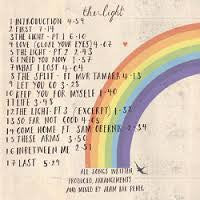 the light
1 INTRODUCTION 4-59
2 FIRST 7-14
3 THE LIGHT - PT 1 6-10
4 LOVE (CLOSE YOUR EYES) 4-07
5 THE LIGHT - PT 2 2-43
6 I NEED YOU NOW 1-57
7 WHAT I LOST 4-04
8 THE SPLIT - FT MVR TAMARA 4-13
9 LET YOU GO 3-28
10 KEEP YOU FOR MYSELF 1-40
11 LIFE 3-48
12 THE LIGHT - PT 3 (EXCERPT) 3-37
13 SO FAR NOT GOOD 4-05
14 COME HOME FT. SAM 2-34
15 THESE ARMS 3-50
16 INBETWEEN ME 2-51
17 LAST 5-29
ALL SONGS WRITTEN
PRODUCED, ARRANGEMENTS
AND MIXED BY